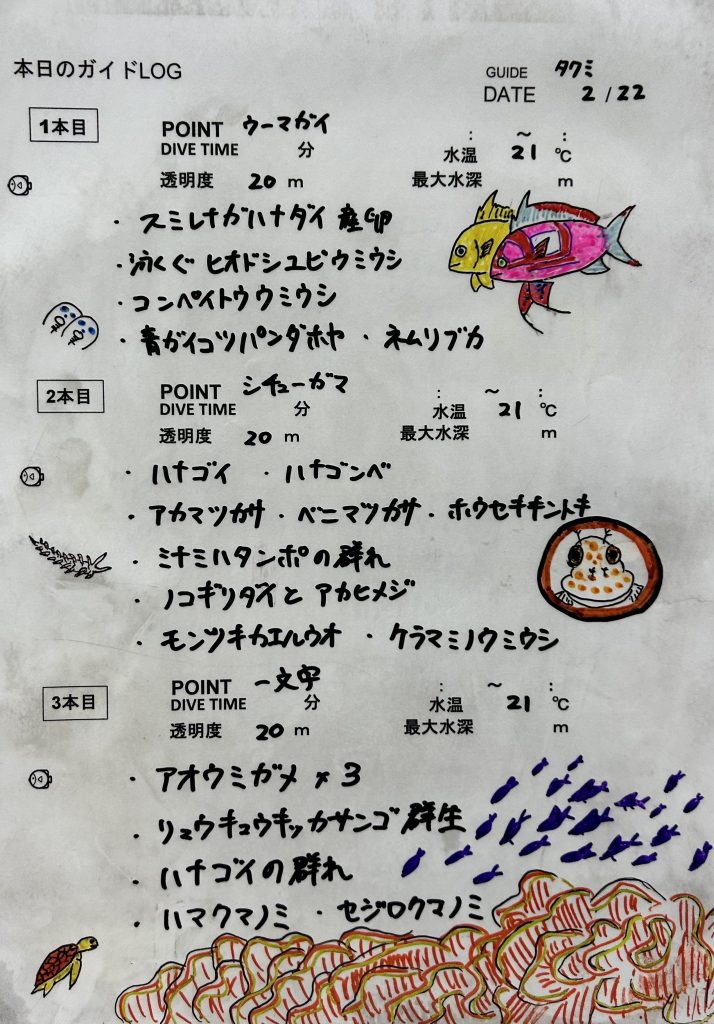 本日のガイドLOG
GUIDE タクミ
DATE 2/22
1本目 POINT ウーマガイ : ～ :
DIVE TIME 分 水温 21 ℃
透明度 20 m 最大水深 m
・スミレナガハナダイ 産卵
・泳ぐ ヒオドシユビウミウシ
・コンペイトウウミウシ
・青ガイコツパンダホヤ ・ネムリブカ
2本目 POINT シチューガマ : ～ :
DIVE TIME 分 水温 21 ℃
透明度 20 m 最大水深 m
・ハナゴイ ・ハナゴンベ
・アカマツカサ・ベニマツカサ・ホウセキキントキ
・ミナミハタンポの群れ
・ノコギリダイと アカヒメジ
・モンツキカエルウオ ・クラマミノウミウシ
3本目 POINT 一文字 : ～ :
DIVE TIME 分 水温 21 ℃
透明度 20 m 最大水深 m
・アオウミガメ ×3
・リュウキュウキッカサンゴ 群生
・ハナゴイの群れ
・ハマクマノミ ・セジロクマノミ